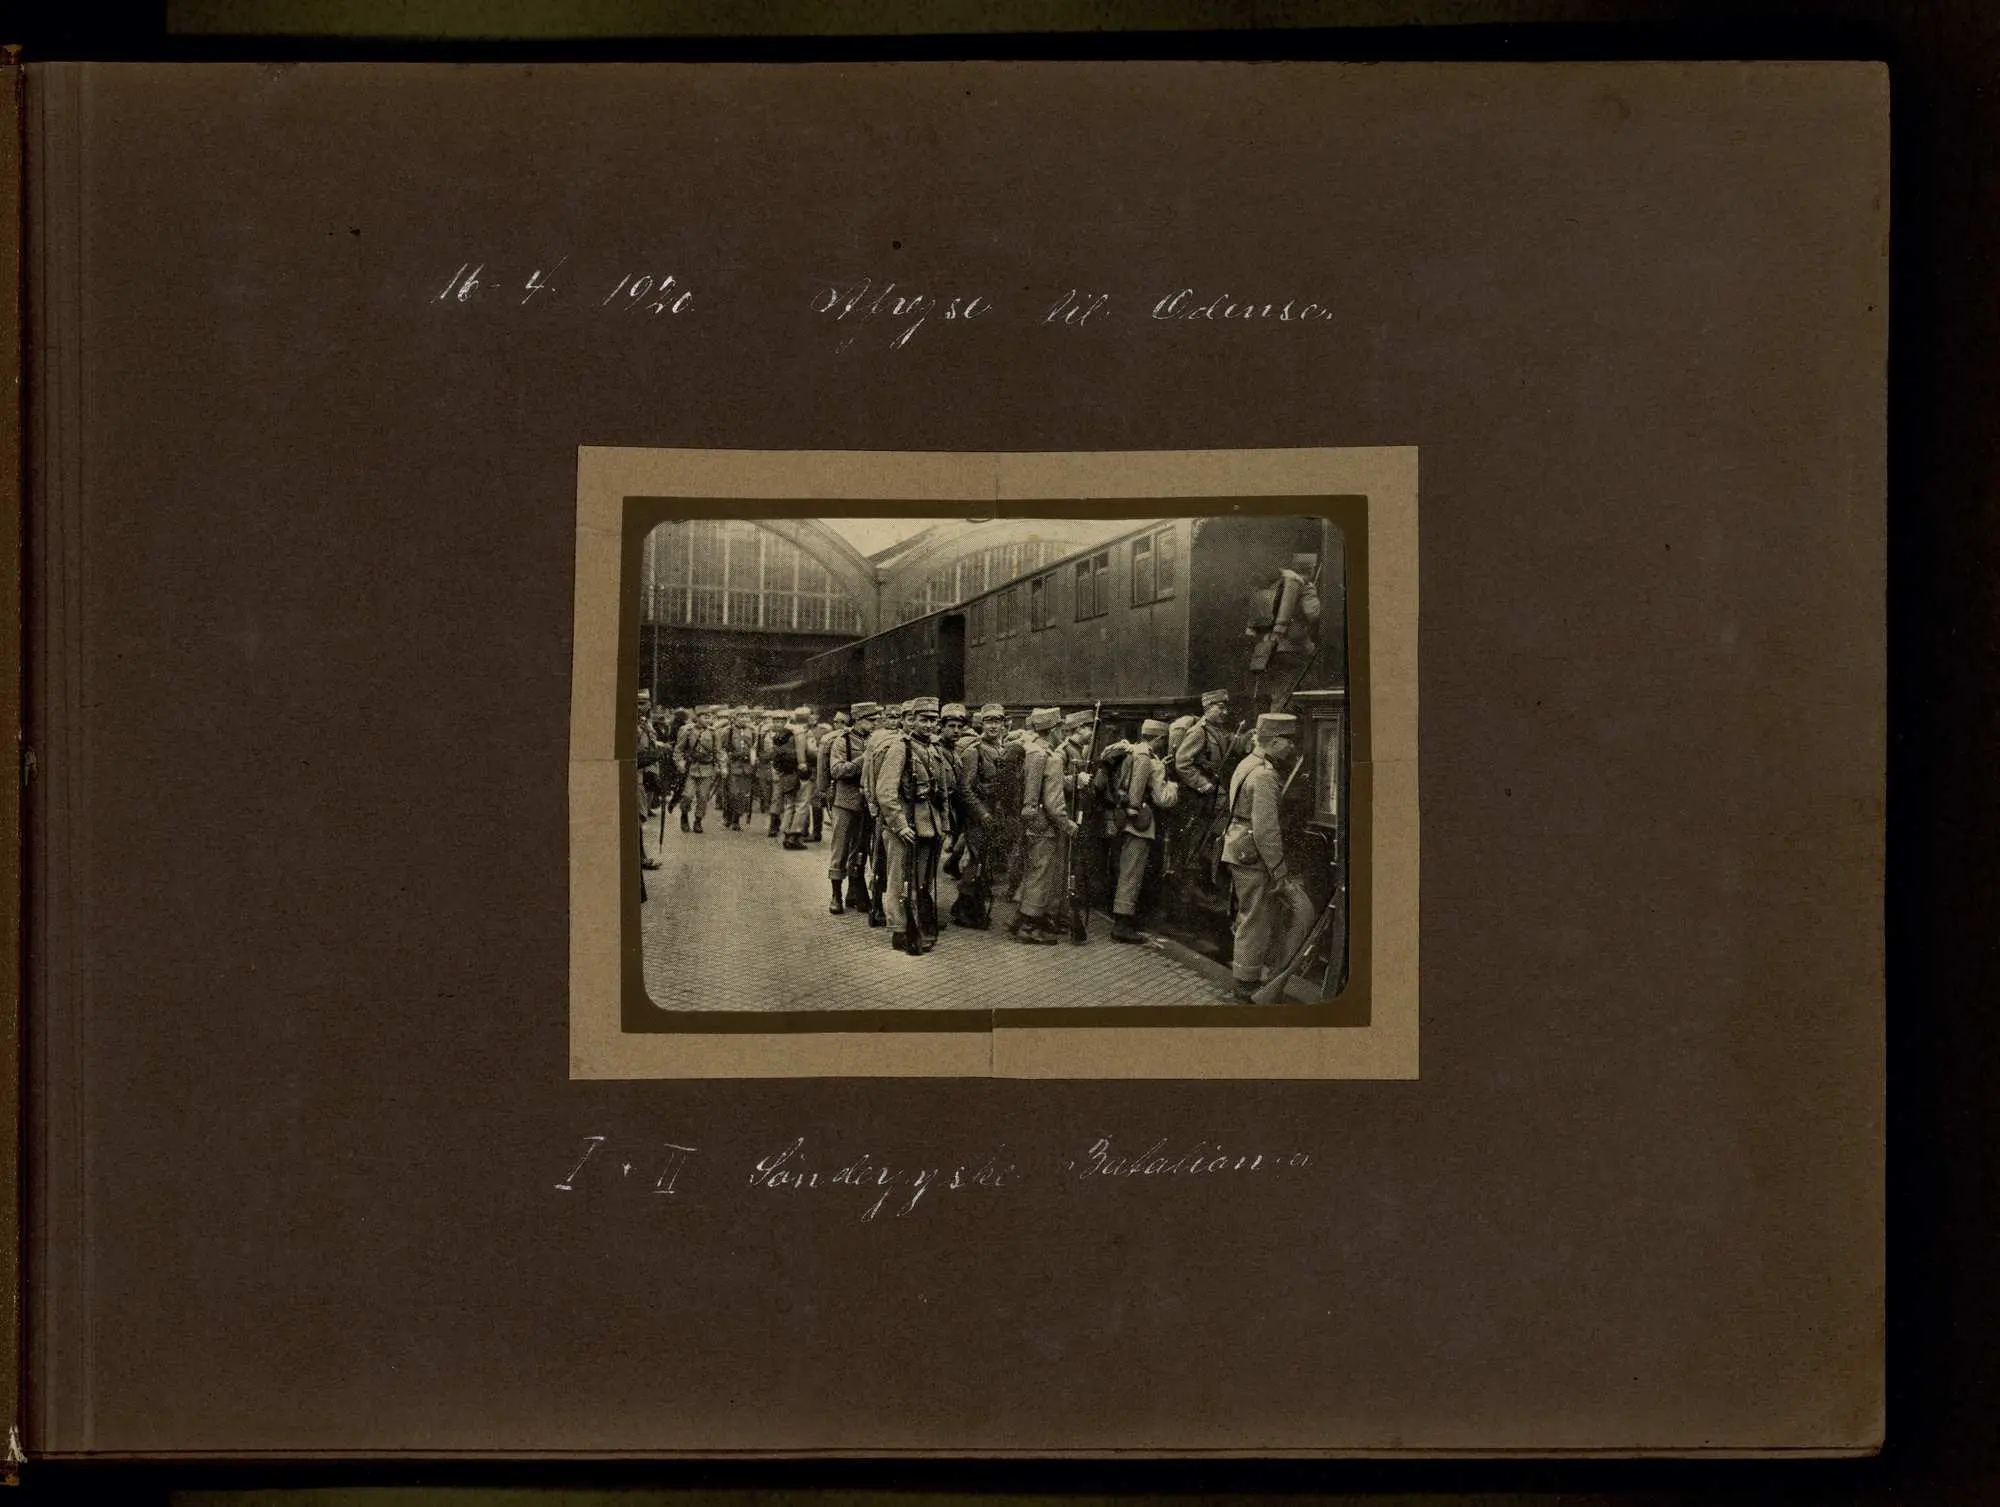 16-4. 1920. Afrejse til Odense.
I + II Sønderjyske Bataljoner